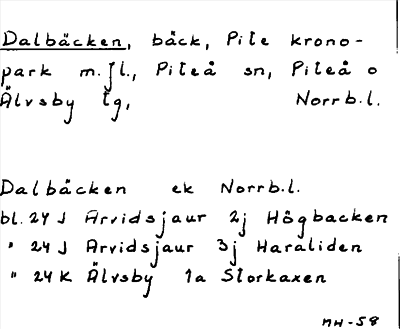 Dalbäcken, bäck, Pite krono-
park m.fl., Piteå sn, Piteå o
Älvsby tg, Norrb.l.
Dalbäcken ek Norrb.l.
bl. 24 J Arvidsjaur 2j Högbacken
" 24 J Arvidsjaur 3j Haraliden
" 24 K Älvsby 1a Storkaxen
MH-58